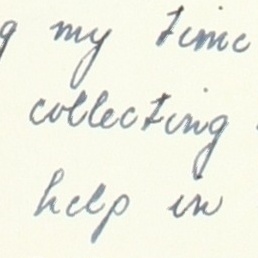 my time
collecting
help in